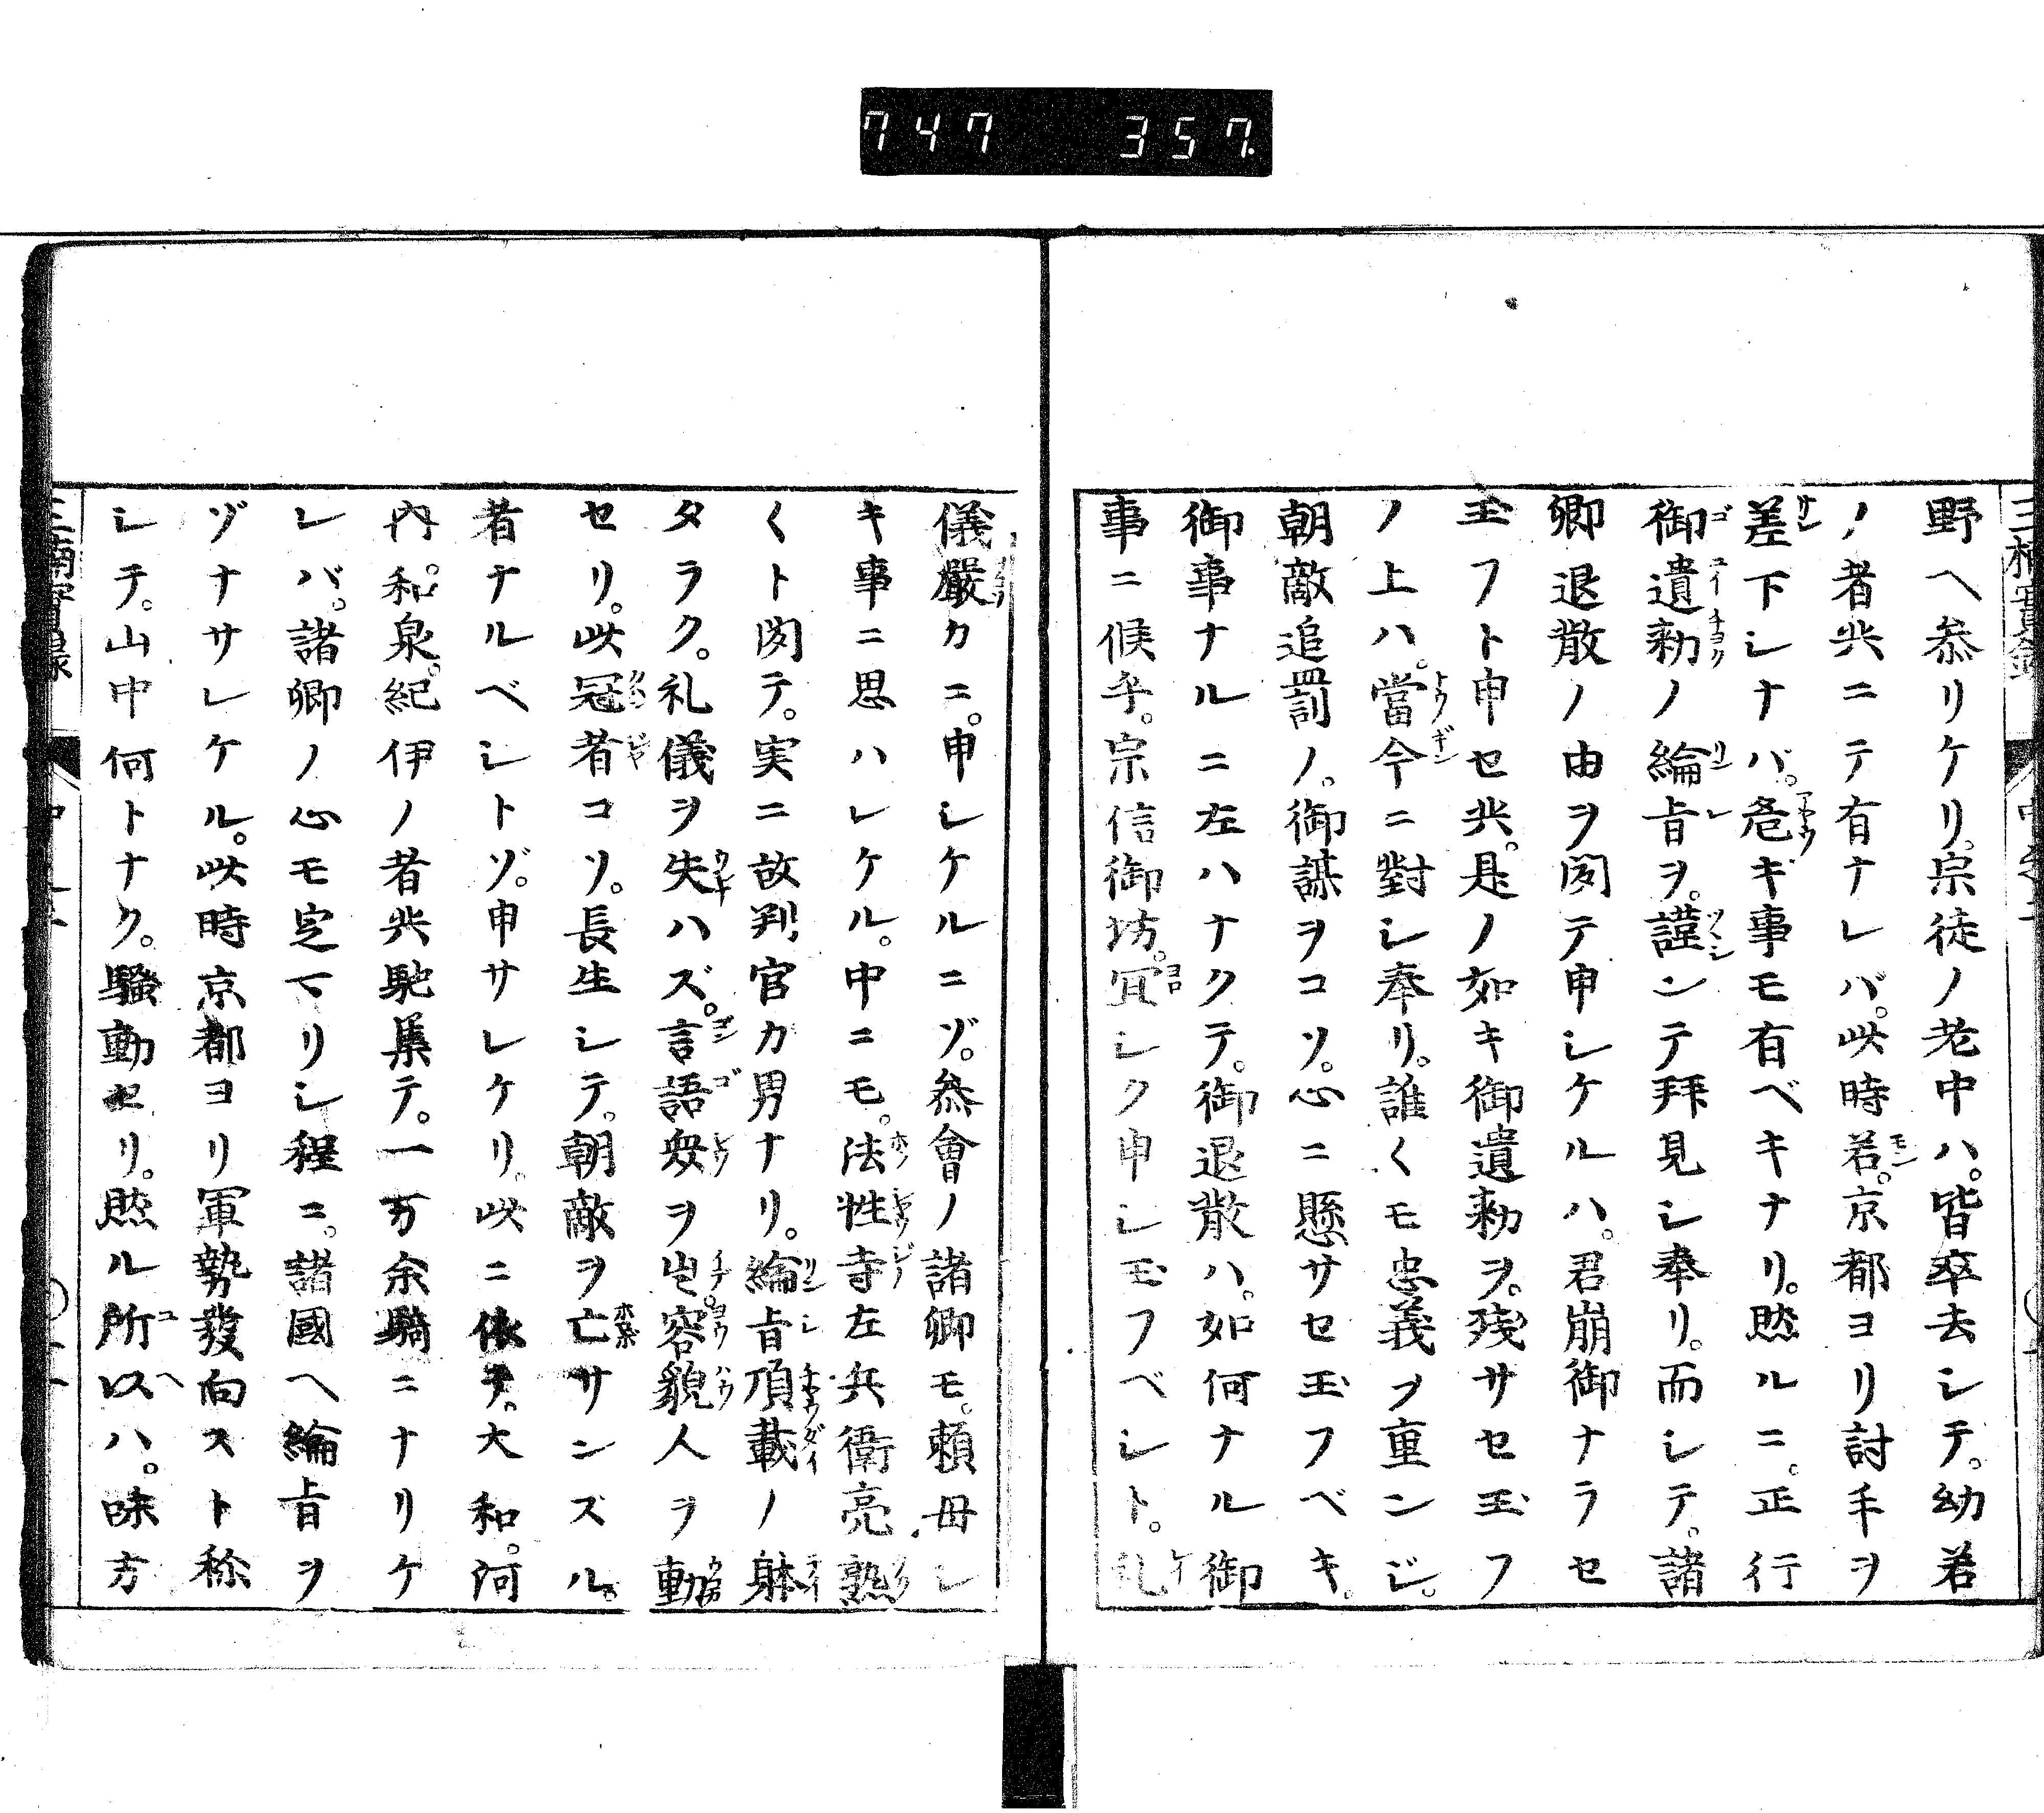 747 357.
野ヘ参リケリ。宗徒ノ老中ハ。皆卒去シテ。幼若
ノ者共ニテ有ナレバ。此時若。京都ヨリ討手ヲ
差下シナバ。危ギ事モ有ベキナリ。然ルニ。正行
御遺勅ノ綸旨ヲ。謹ンテ拜見シ奉リ。而シテ。諸
卿退散ノ由ヲ聞テ申シケルハ。君崩御ナラセ
玉フト申セ共。是ノ如キ御遺勅ヲ。残サセ玉フ
ノ上ハ。當今ニ對シ奉リ。誰くモ忠義ヲ重ンジ。
朝敵追罰ノ。御謀ヲコソ。心ニ懸サセ玉フベキ。
御事ナルニ左ハナクテ。御退散ハ。如何ナル御
事ニ候乎。宗信御坊。冝シク申シ玉フベシト。礼
儀嚴カニ。申シケルニゾ。参會ノ諸卿モ。頼母シ
キ事ニ思ハレケル。中ニモ。法性寺左兵衛亮熟
くト聞テ。実ニ故判官カ男ナリ。綸旨頂載ノ躰
タラク。礼儀ヲ失ハズ。言語發ヲ出。容貌人ヲ動
セリ。此冠者コソ。長生シテ。朝敵ヲ亡サンズル。
者テルベシトゾ。申サレケリ。此ニ依テ。大和。河
内。和泉。紀伊ノ者共馳集テ。一万余騎ニナリケ
レバ。諸卿ノ心モ定マリシ程ニ。諸國ヘ綸旨ヲ
ゾナサレケル。此時京都ヨリ軍勢發向スト称
シテ。山中何トナク。騒動セリ。然ル所以ハ。味方